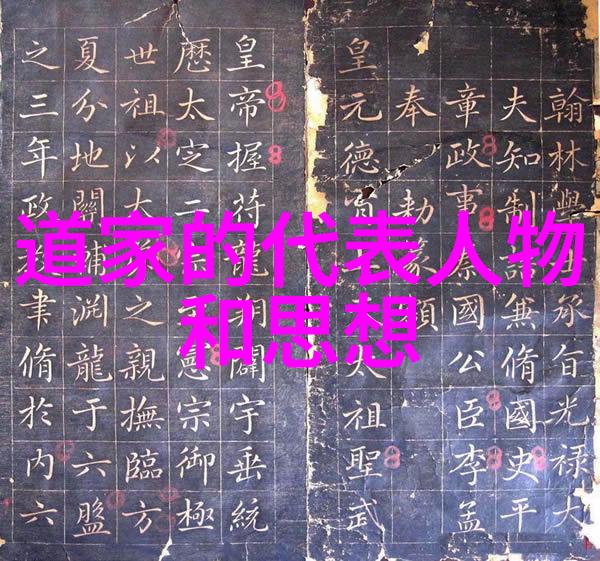 道家的代表人物
和思想
翰林學士承旨光祿大
夫知制誥兼脩國史平
章政事國公臣李孟
奉勅篆額
皇元德祖聖武
皇帝握符龍闢宇垂統
歷太定憲宗御極
世祖以大之親撫臨方
夏分地關輔淵龍于六盤
之三年政聿脩於内六